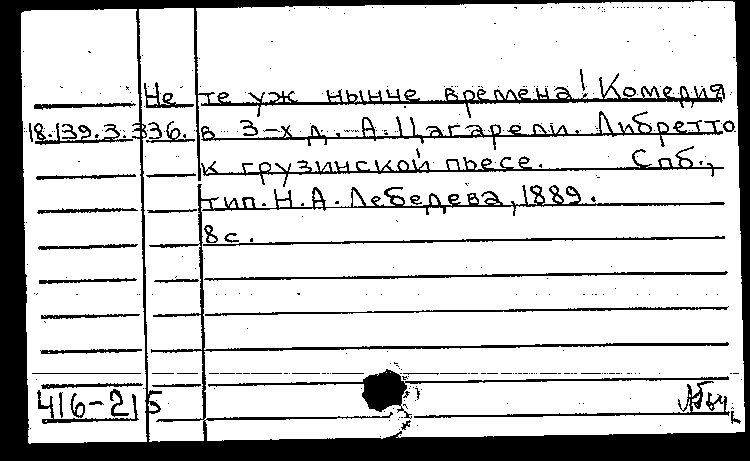 Не те уж нынче времена! Комедия
18.139.3.336. в 3-х д. А. Цагарели. Либретто
к грузинской пьесе. Спб.,
тип. Н.А. Лебедева, 1889.
8 с.
416-215